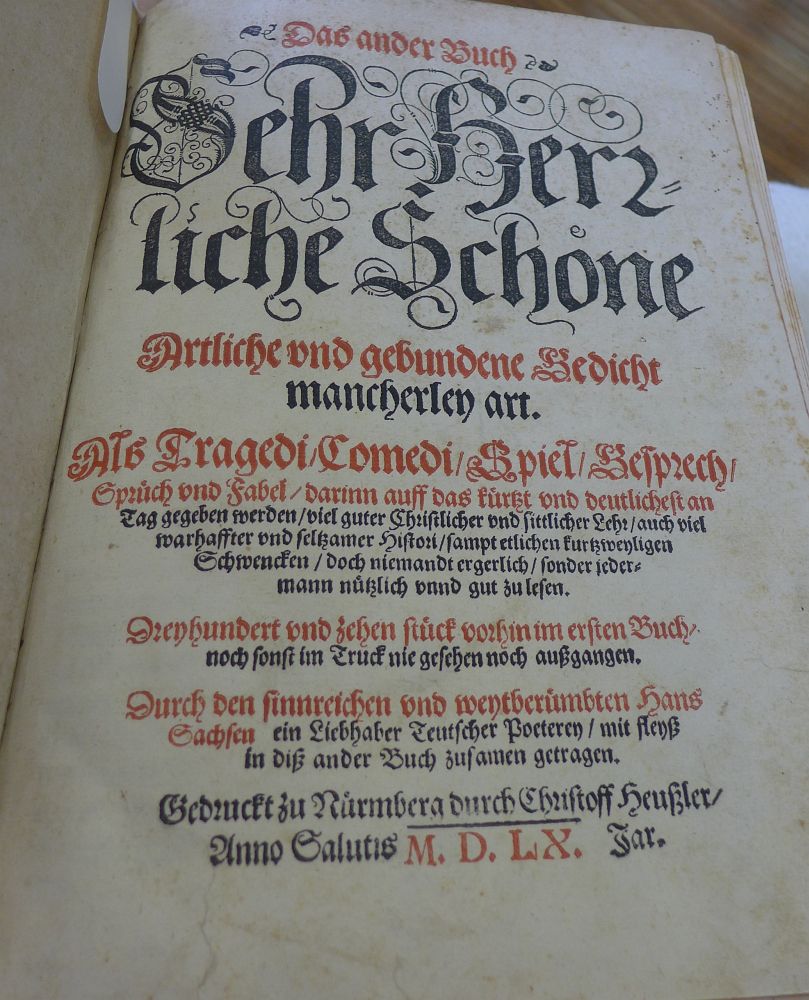 Das ander Buch
Sehr Herr⸗
liche Schöne
Artliche vnd gebundene Gedicht
mancherley art.
Als Tragedi/Comedi/Spiel/Gesprech/
Sprüch vnd Fabel/darinn auff das kürtzt vnd deutlichest an
Tag gegeben werden/viel guter Christlicher vnd sittlicher Lehr/auch viel
warhaffter vnd seltzamer Histori/sampt etlichen kurtzweyligen
Schwencken/doch niemandt ergerlich/sonder jeder⸗
mann nützlich vnnd gut zu lesen.
Dreyhundert vnd zehen stück vorhin im ersten Buch/
noch sonst im Truck nie gesehen noch außgangen.
Durch den sinnreichen vnd weytberümbten Hans
Sachsen ein Liebhaber Teutscher Poeterey/mit fleyß
in diß ander Buch zusamen getragen.
Gedruckt zu Nürmberg durch Christoff Heußler/
Anno Salutis M. D. LX. Jar.